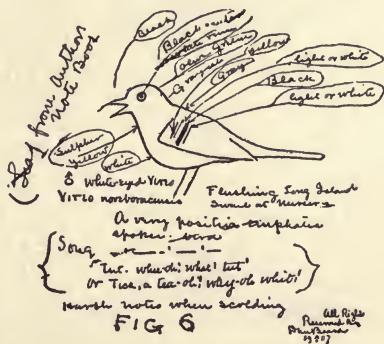 (Leaf from Author
Note Book
Black
Black outer
white rim
olive green
Grayish
Yellow
Gray
light or white
Black
light or white
Sulphur
yellow
white
♂ White-eyed Vireo
Vireo noveboracensis
Flushing Long Island
Swale at
A very positive emphatic
spoken bird
Song
"Tut-whee-oh! what! tut'
Or Tick, a tee-oh! why-oh white!
Harsh notes when scolding
FIG 6
All Rights
Reserved
Dan Beard